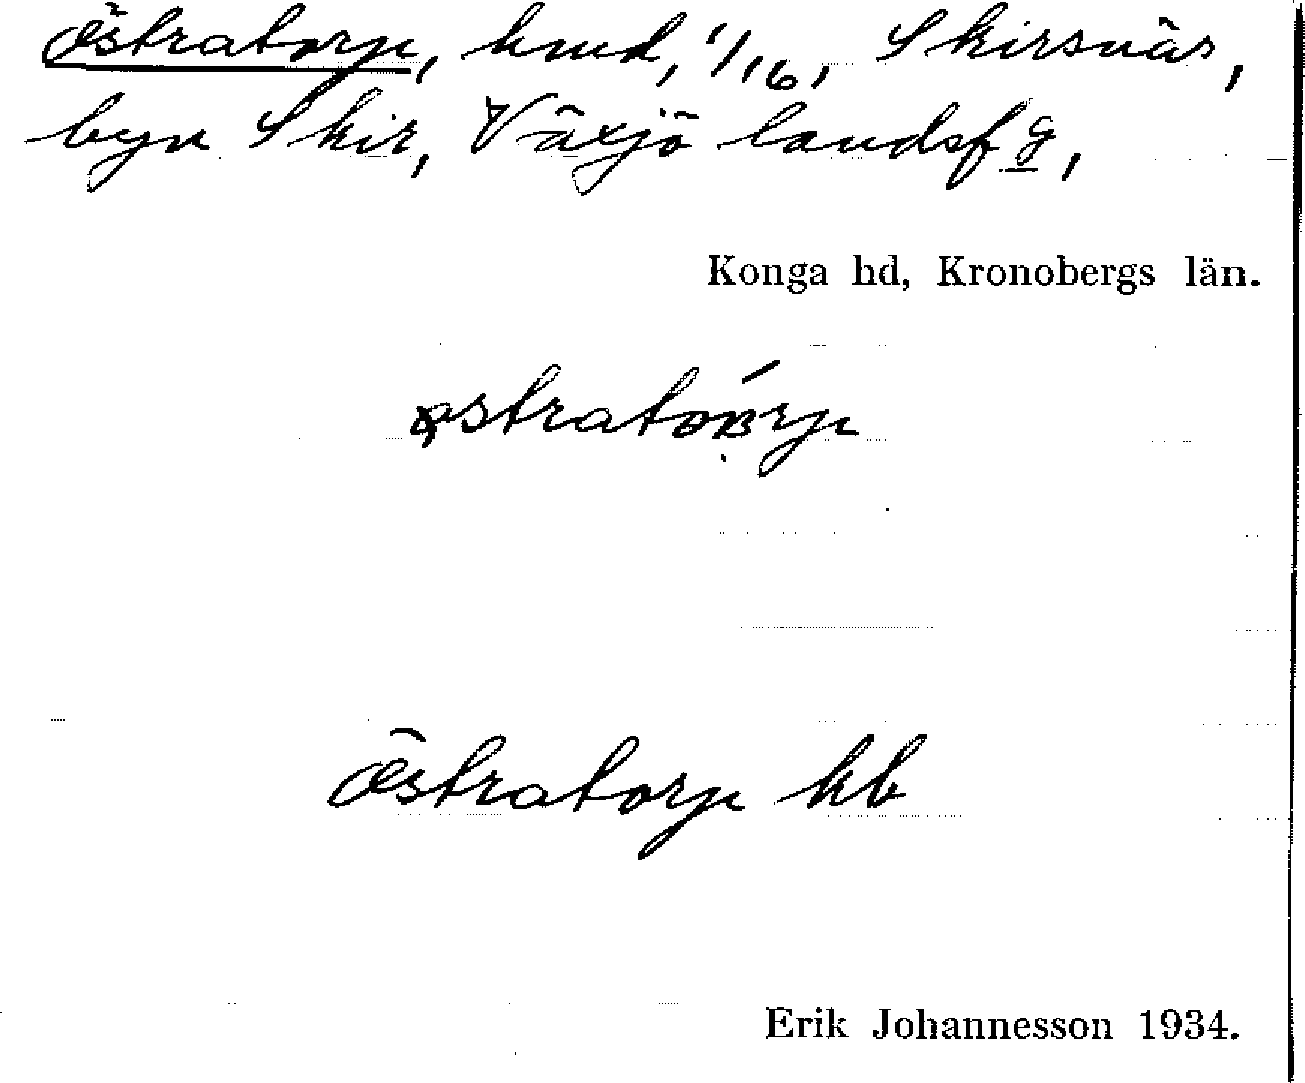 Östratorp, hmd, 1/16, Skirsnäs,
byn Skir, Växjö landsfg,
Konga hd, Kronobergs län.
Östratorp kb
Erik Johannesson 1934.